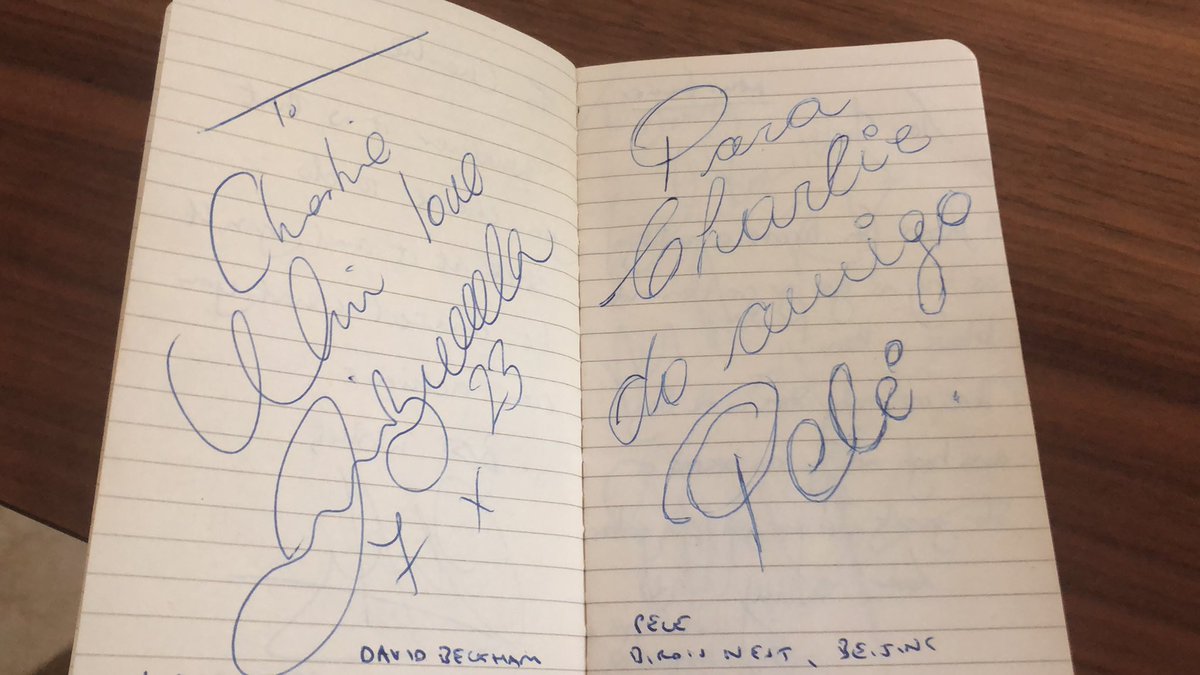 To
Charlie
love
23
x
x
DAVID BECKHAM
Para
Charlie
do amigo
Pelé.
PELE
BIRDS NEST, BEIJING